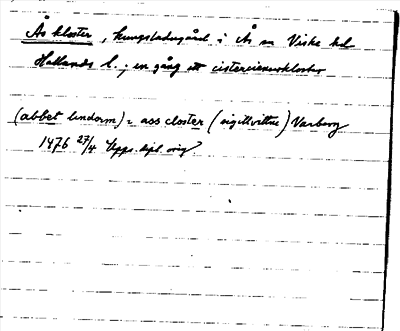 Ås kloster, kungsladugård i Ås sn Viske hd
Hallands l.; en gång ett cistercienserkloster
(abbet lindorm) i ass closter (sigillvittne) Varberg
1476 27/4 Uppg. dipl. orig.